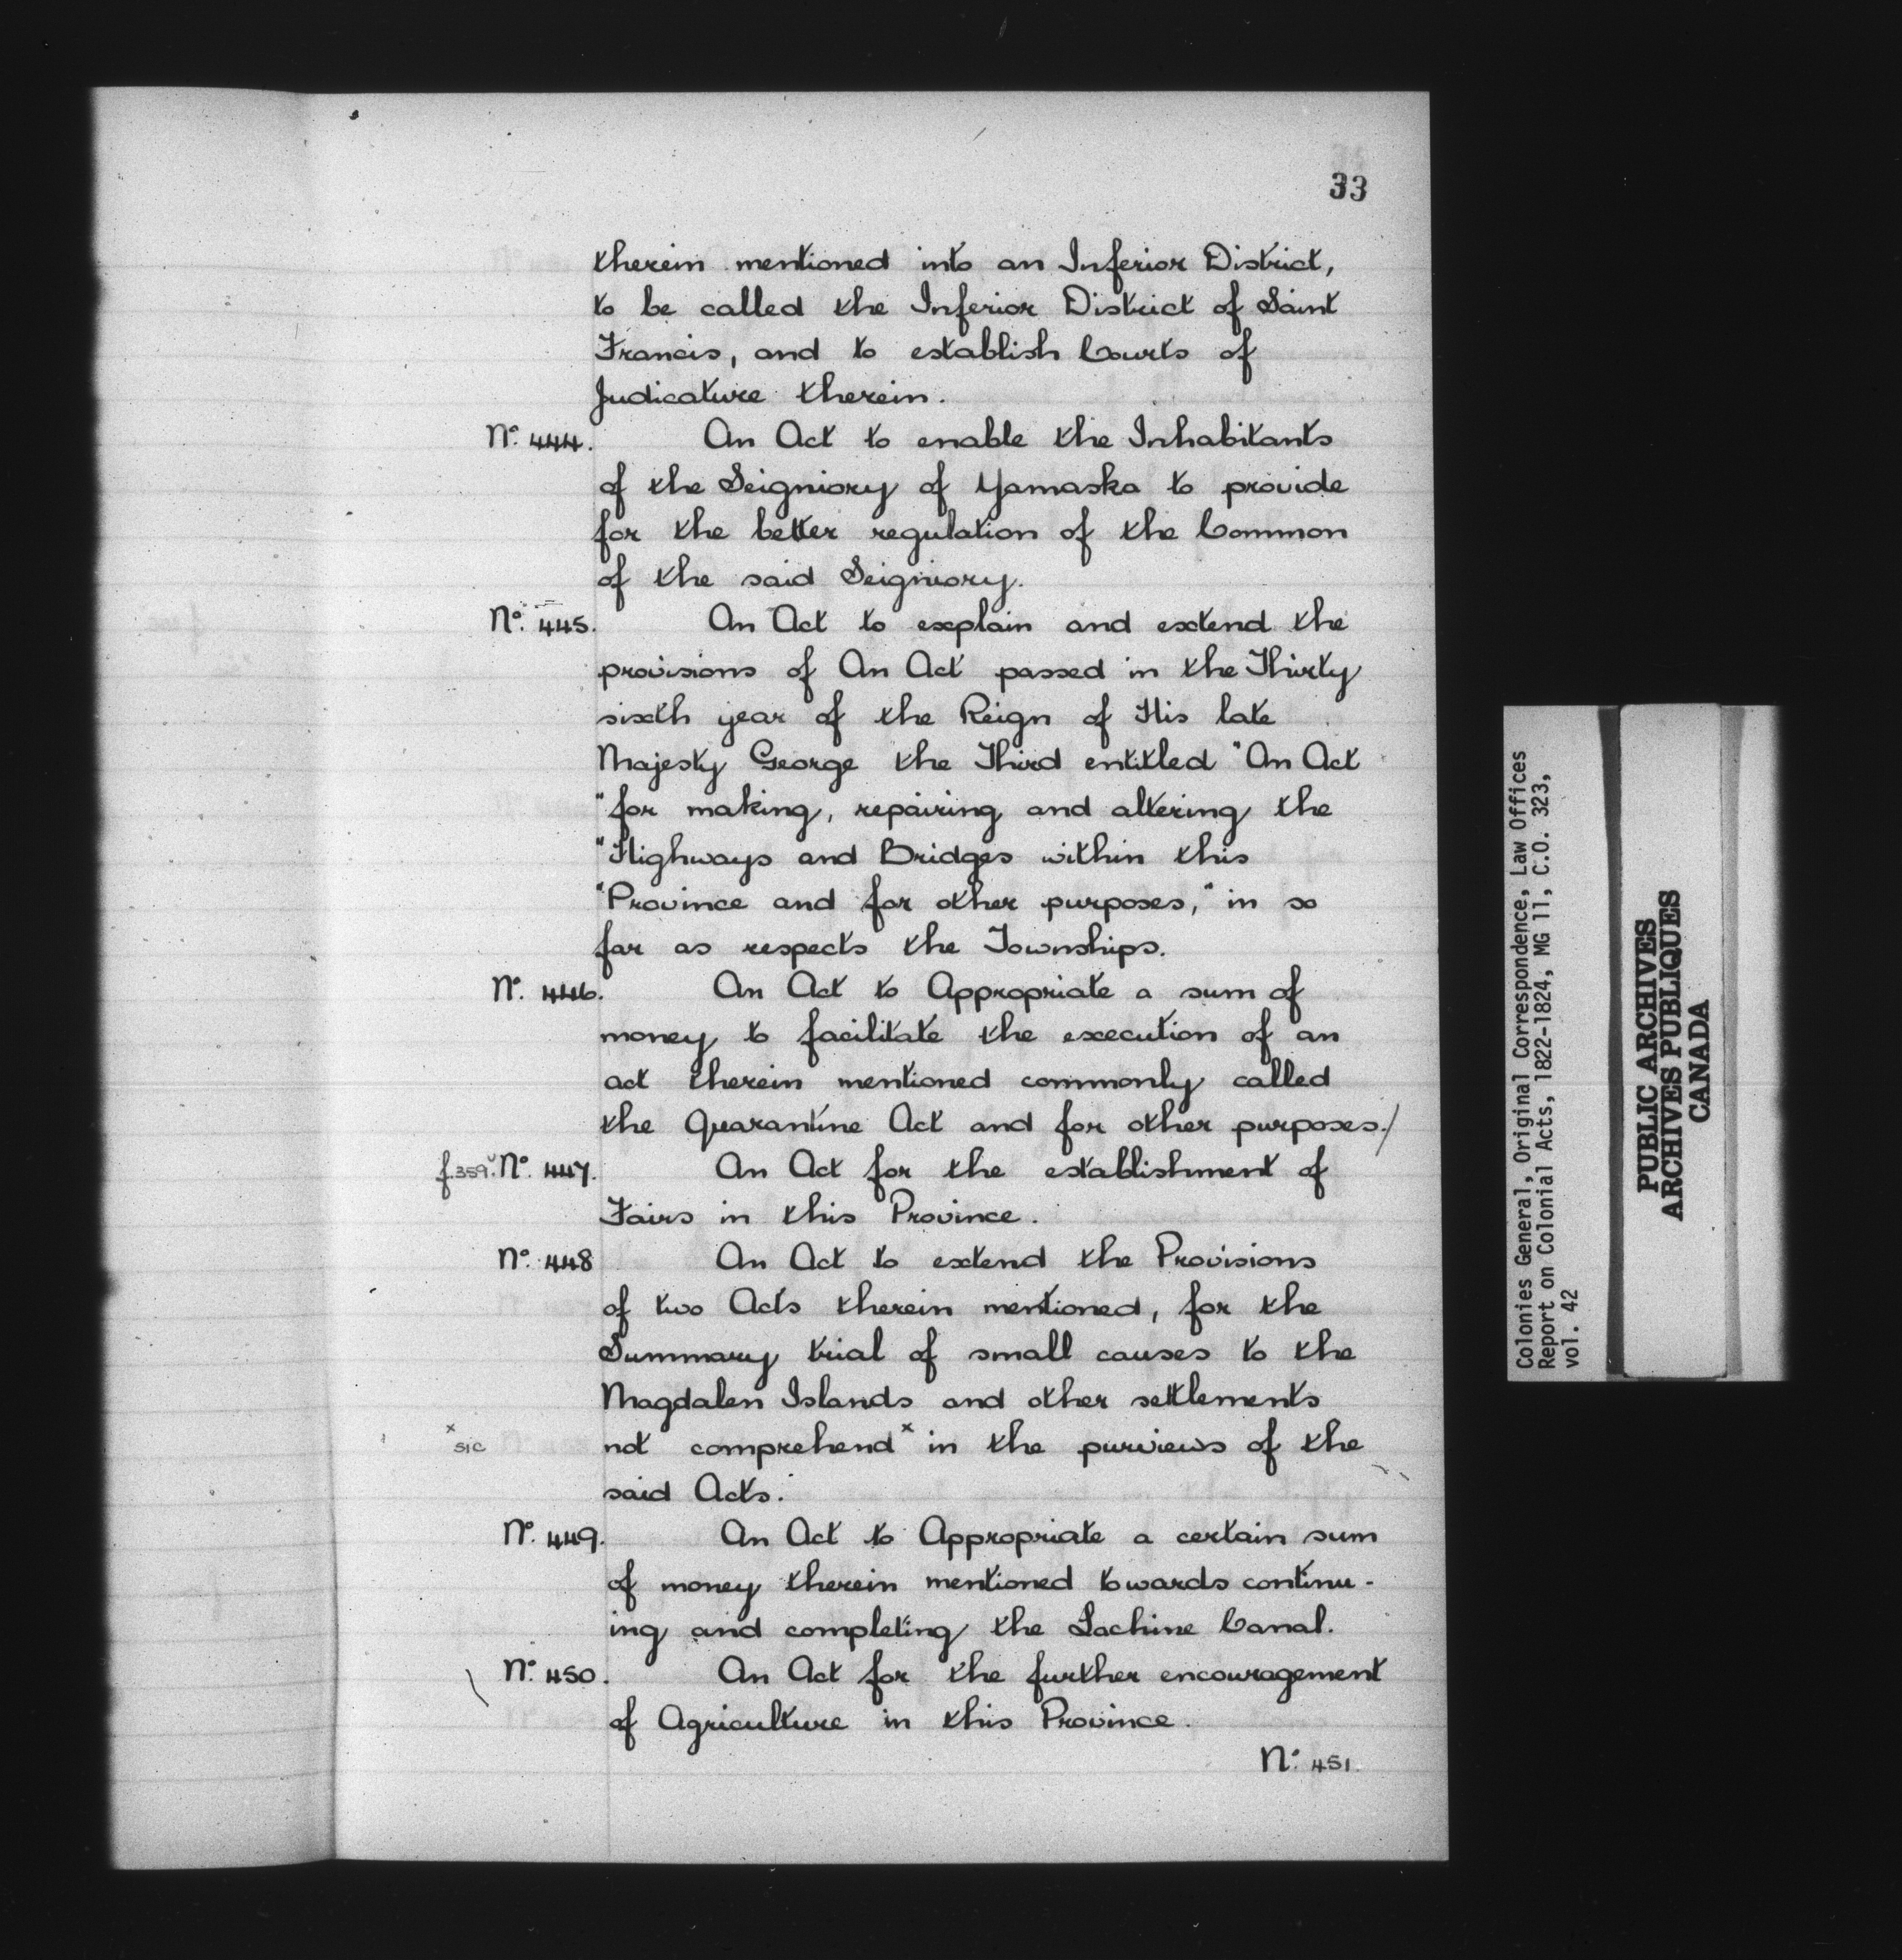 33
therein mentioned into an Inferior District,
to be called the Inferior District of Saint
Francis, and to establish Courts of
Judicature therein.
No. 444. An Act to enable the Inhabitants
of the Seigniory of Yamaska to provide
for the better regulation of the Common
of the said Seigniory.
No. 445. An Act to explain and extend the
provisions of An Act passed in the Thirty
sixth year of the Reign of His late
Majesty George the Third entitled "An Act
"for making, repairing and altering the
"Highways and Bridges within this
"Province and for other purposes," in so
far as respects the Townships.
No. 446. An Act to Appropriate a sum of
money to facilitate the execution of an
act therein mentioned commonly called
the Quarantine Act and for other purposes./
f.359v. No. 447. An Act for the establishment of
Fairs in this Province.
No. 448 An Act to extend the Provisions
of two Acts therein mentioned, for the
Summary trial of small causes to the
Magdalen Islands and other settlements
x sic not comprehend x in the purviews of the
said Acts.
No. 449. An Act to Appropriate a certain sum
of money therein mentioned towards continu-
ing and completing the Lachine Canal.
No. 450. An Act for the further encouragement
of Agriculture in this Province.
No. 451.
Colonies General, Original Correspondence, Law Offices
Report on Colonial Acts, 1822-1824, MG 11, C.O. 323,
vol. 42
PUBLIC ARCHIVES
ARCHIVES PUBLIQUES
CANADA